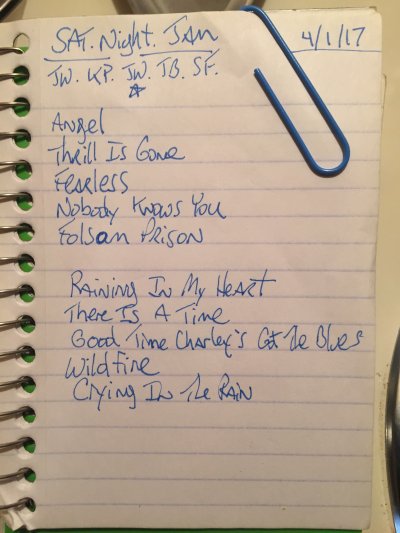 SAT. Night. JAM 4/1/17
JW. KP. JW. JB. SF.
Angel
Thrill Is Gone
Fearless
Nobody Knows You
Folsom Prison
Raining In My Heart
There Is A Time
Good Time Charley's Got The Blues
Wildfire
Crying In The Rain